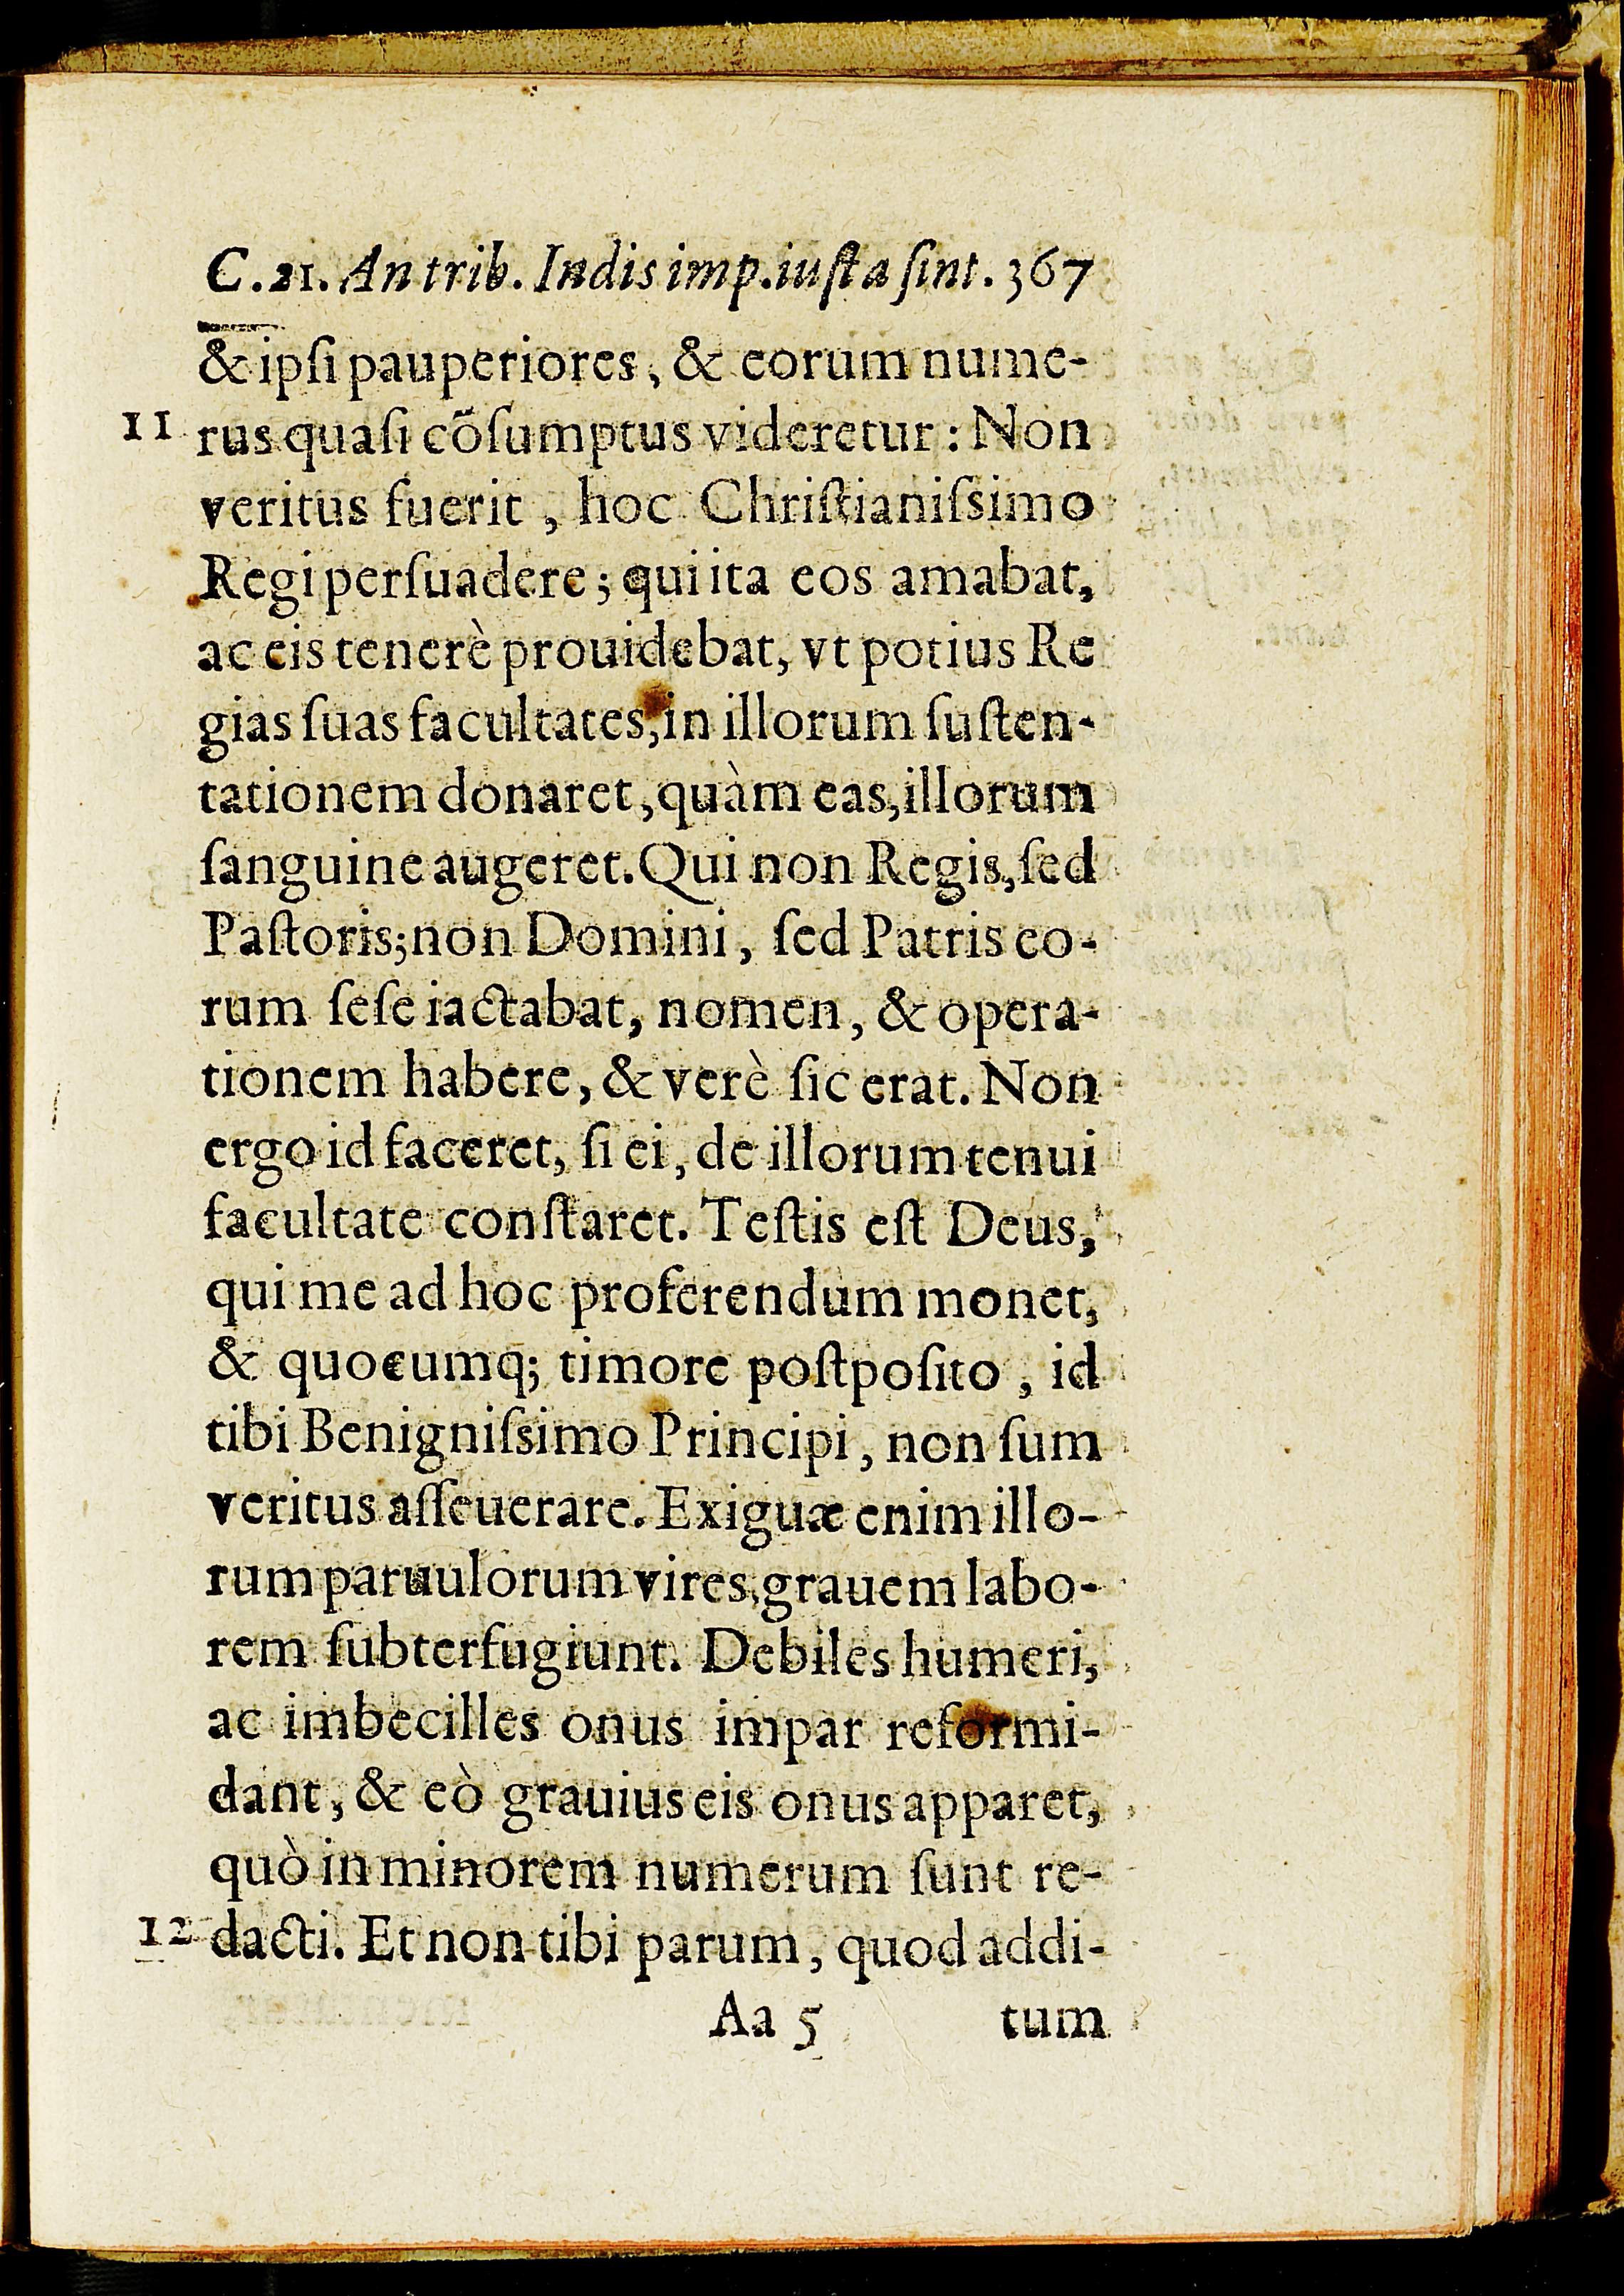 C.21. An trib. Indis imp. iusta sint. 367
& ipsi pauperiores, & eorum nume-
11 rus quasi cõsumptus videretur: Non
veritus fuerit, hoc Christianissimo
Regi persuadere; qui ita eos amabat,
ac eis tenerè prouidebat, vt potius Re
gias suas facultates, in illorum susten-
tationem donaret, quàm eas, illorum
sanguine augeret. Qui non Regis, sed
Pastoris; non Domini, sed Patris eo-
rum sese iactabat, nomen, & opera-
tionem habere, & verè sic erat. Non
ergo id faceret, si ei, de illorum tenui
facultate constaret. Testis est Deus,
qui me ad hoc proferendum monet,
& quocumq; timore postposito, id
tibi Benignissimo Principi, non sum
veritus asseuerare. Exiguæ enim illo-
rum paruulorum vires, grauem labo-
rem subterfugiunt. Debiles humeri,
ac imbecilles onus impar reformi-
dant, & eò grauius eis onus apparet,
quò in minorem numerum sunt re-
12 dacti. Et non tibi parum, quod addi-
Aa 5 tum